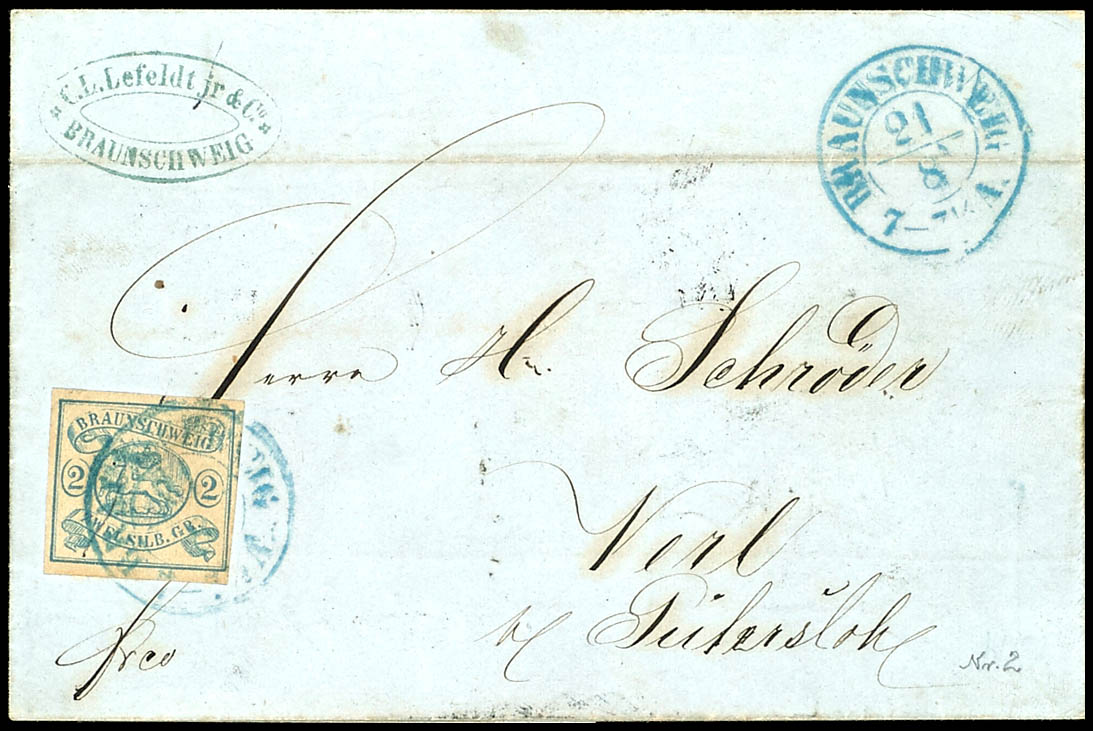 C.L. Lefeldt jr & Co
BRAUNSCHWEIG
BRAUNSCHWEIG
21
8
7–7½ A.
Herrn H. Schröder
BRAUNSCHWEIG
2 2
ZWEI SILB. GR.
Verl
b/ Gütersloh
frco
Nr. 2